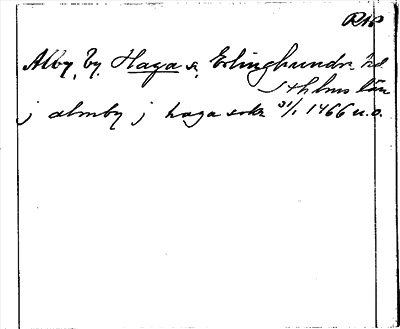 RAP
Alby, by, Haga s, Erlinghundr. hd
Sthlms län
j almby j haga sokn 31/1 1466 u.o.